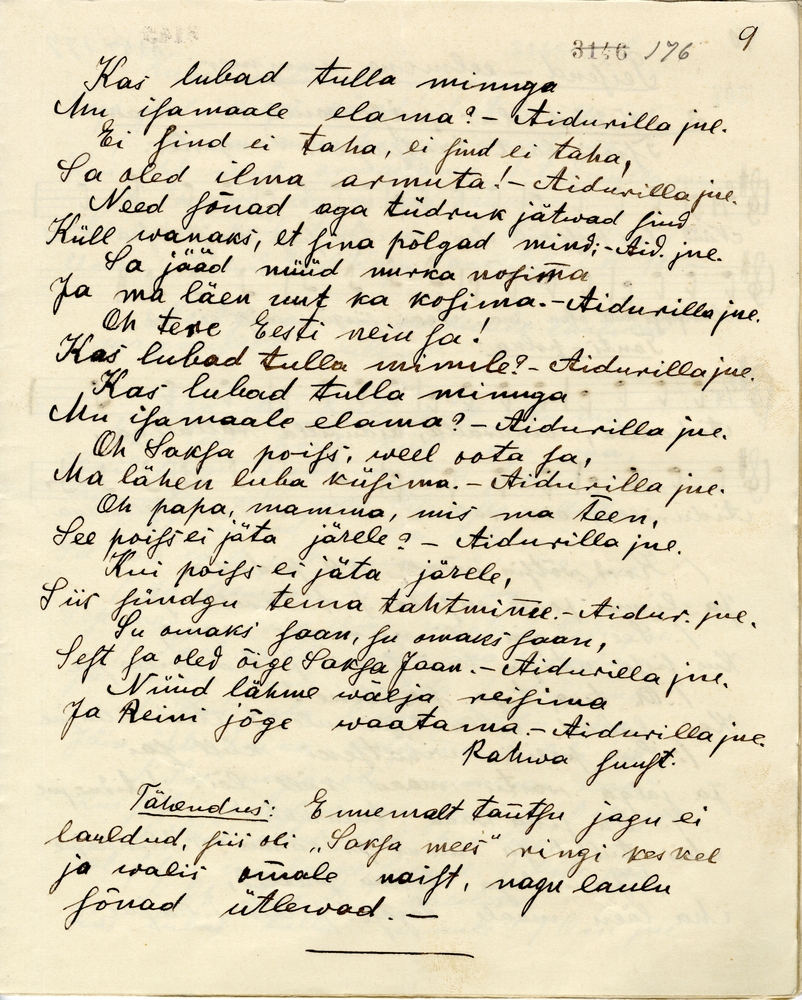 9
3146 176
Kas lubad tulla minuga
Mu isamaale elama? – Aidurilla jne.
Ei sind ei taha, ei sind ei taha,
Sa oled ilma armuta! – Aidurilla jne.
Need sõnad aga tüdruk jätwad sind
Küll wanaks, et sina põlgad mind; – Aid. jne.
Sa jääd nüüd nurka nosim̄a
Ja ma läen uut ka kosima. – Aidurilla jne.
Oh tere Eesti neiu sa!
Kas lubad tulla minule? – Aidurilla jne.
Kas lubad tulla minuga
Mu isamaale elama? – Aidurilla jne.
Oh Saksa poiss, weel oota sa,
Ma lähen luba küsima. – Aidurilla jne.
Oh papa, mamma, mis ma teen,
See poiss ei jäta järele? – Aidurilla jne.
Kui poiss ei jäta järele,
Siis sündgu tema tahtmin̄e. – Aidur. jne.
Su omaks saan, su omaks saan,
Sest sa oled õige Saksa Jaan. – Aidurilla jne.
Nüüd lähme wälja reisima
Ja Reini jõge waatama. – Aidurilla jne.
Rahwa suust.
Tähendus: Ennemalt tantsu jagu ei
lauldud, siis oli „Saksa mees“ ringi keskel
ja walis om̄ale naist, nagu laulu
sõnad ütlewad. –